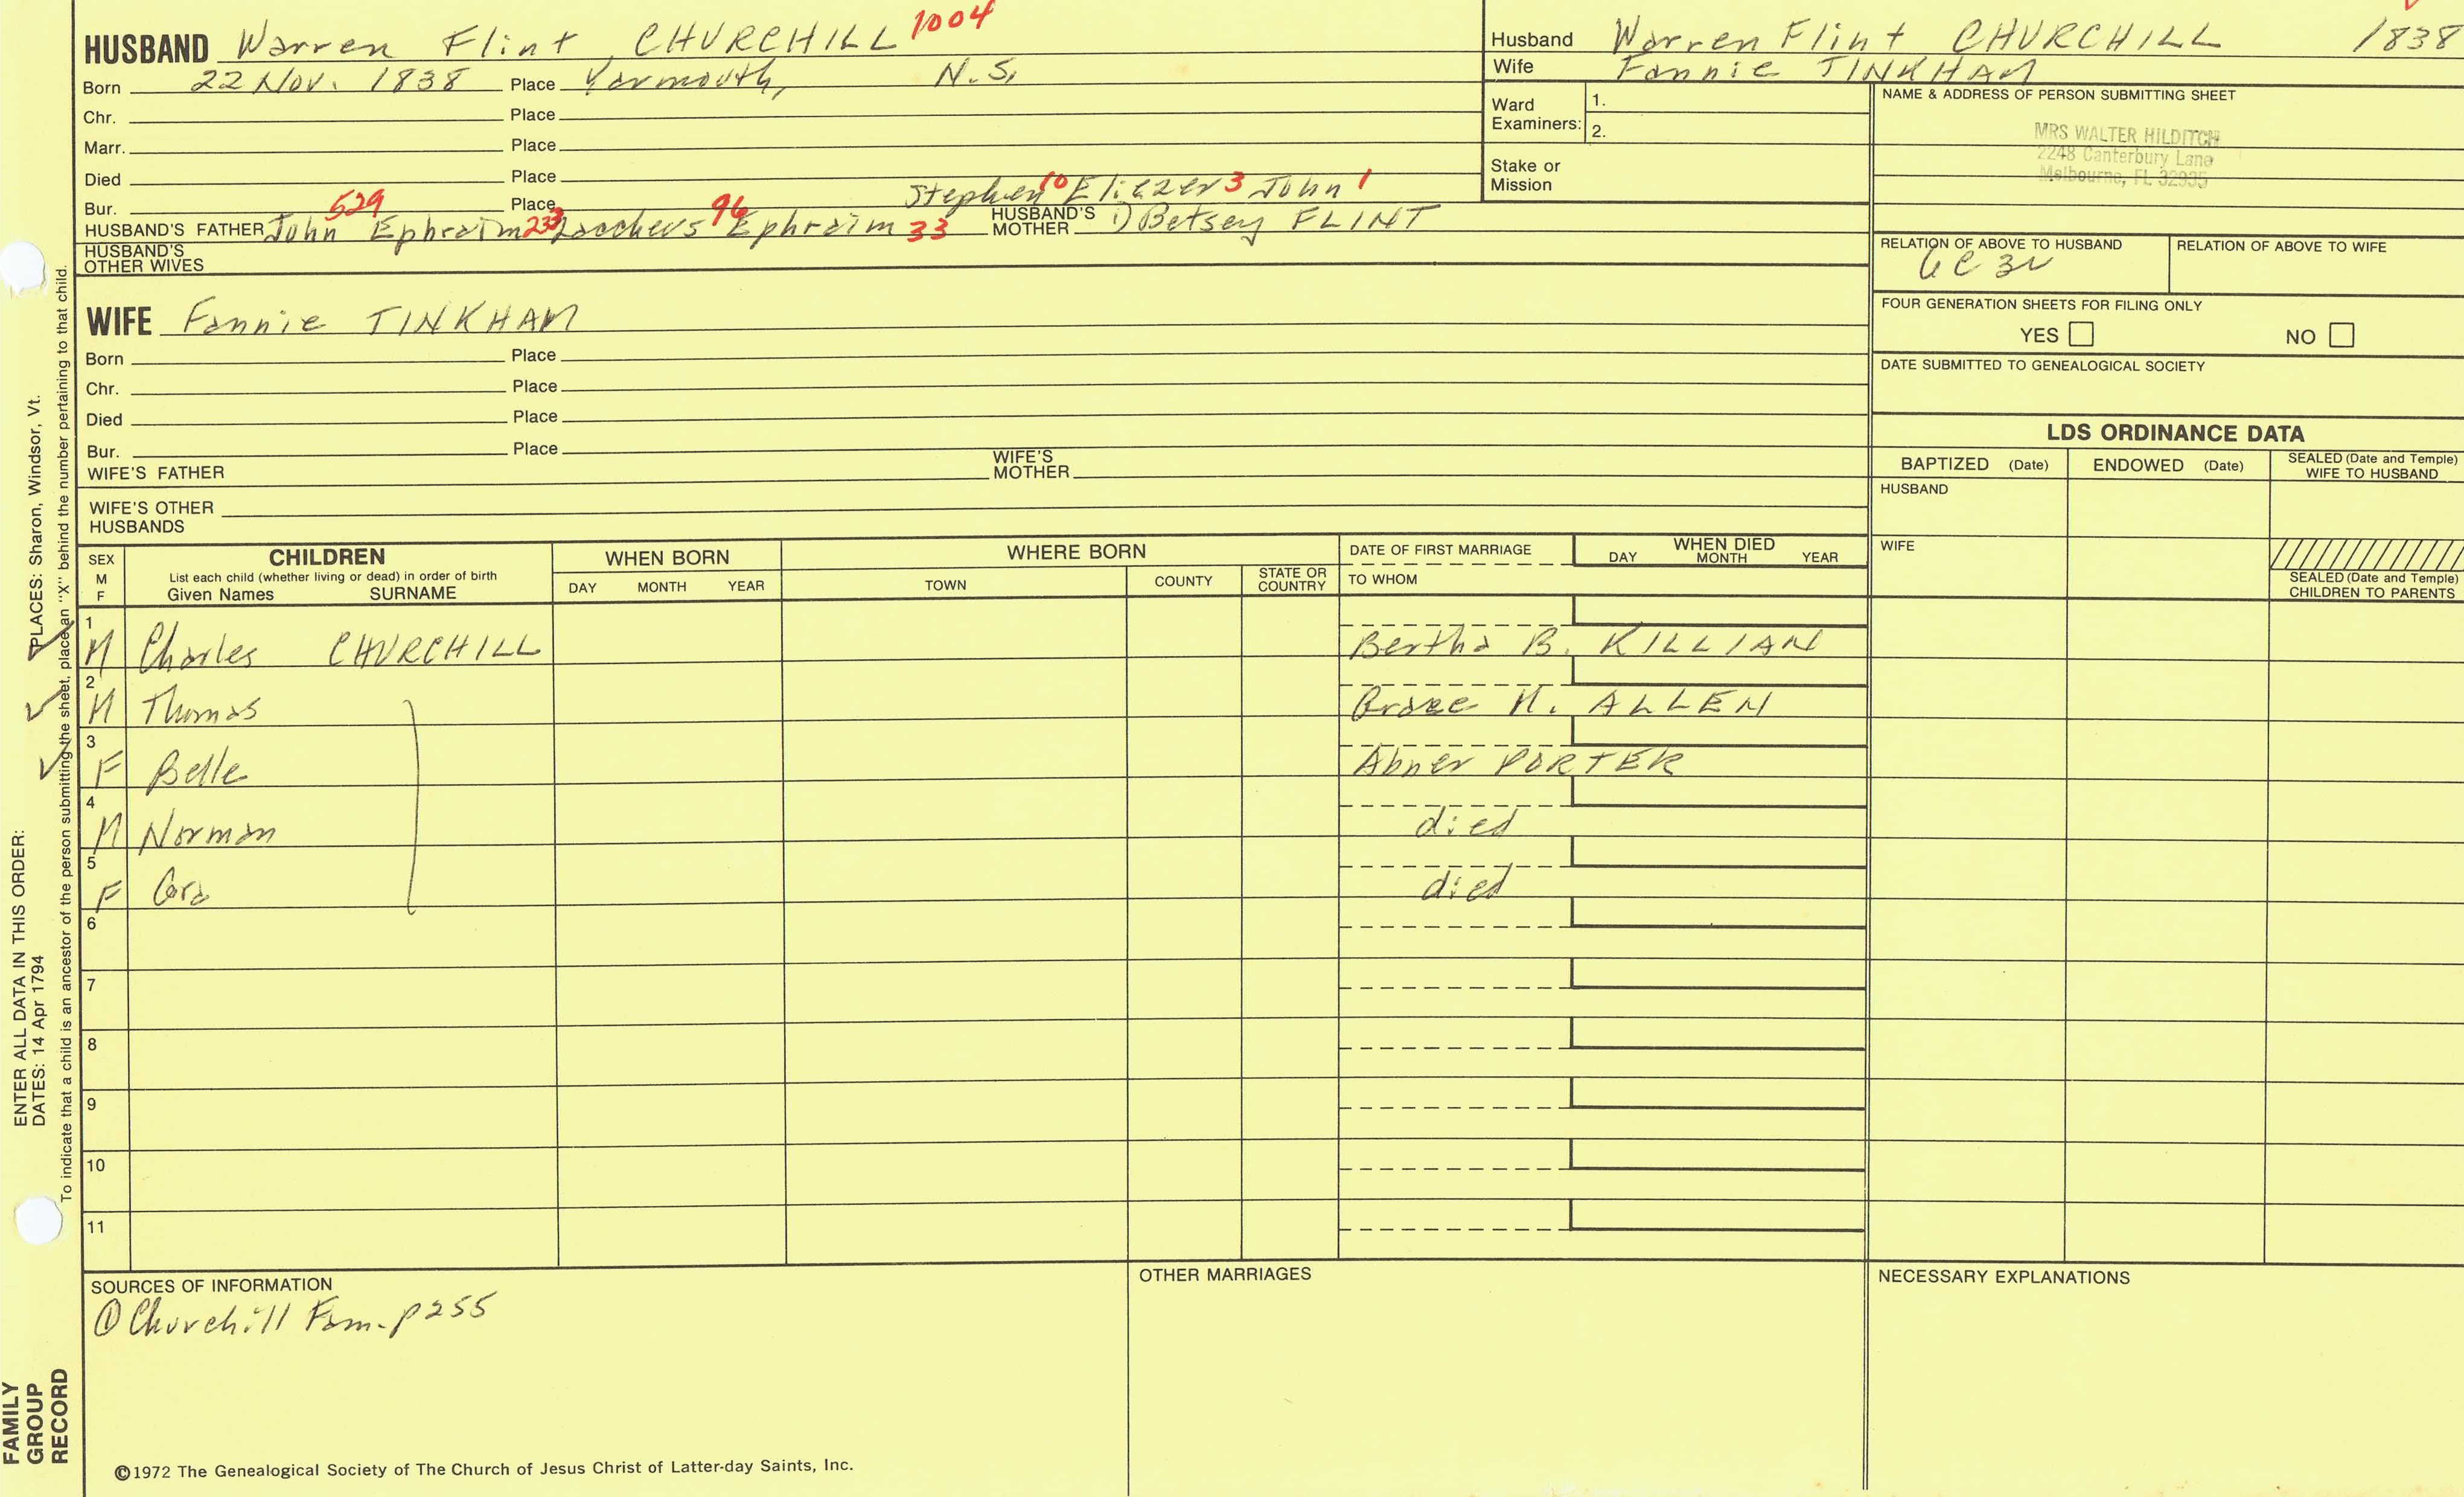 HUSBAND Warren Flint CHURCHILL 1004
Born 22 Nov. 1838 Place Yarmouth, N.S.
Chr. Place
Marr. Place
Died Place
Bur. Place Stephen 10 Eliezer 3 John 1
HUSBAND'S FATHER John 529 Ephraim 233 Zaccheus 96 Ephraim 33 HUSBAND'S MOTHER 1) Betsey FLINT
HUSBAND'S OTHER WIVES
WIFE Fannie TINKHAM
Born Place
Chr. Place
Died Place
Bur. Place
WIFE'S FATHER WIFE'S MOTHER
WIFE'S OTHER HUSBANDS
Husband Warren Flint CHURCHILL 1838
Wife Fannie TINKHAM
Ward Examiners: 1.
2.
Stake or Mission
NAME & ADDRESS OF PERSON SUBMITTING SHEET
MRS WALTER HILDITCH
2248 Canterbury Lane
Melbourne, FL 32935
RELATION OF ABOVE TO HUSBAND RELATION OF ABOVE TO WIFE
FOUR GENERATION SHEETS FOR FILING ONLY
YES NO
DATE SUBMITTED TO GENEALOGICAL SOCIETY
LDS ORDINANCE DATA
BAPTIZED (Date) ENDOWED (Date) SEALED (Date and Temple) WIFE TO HUSBAND
HUSBAND
WIFE
SEALED (Date and Temple) CHILDREN TO PARENTS
SEX M F CHILDREN WHEN BORN WHERE BORN DATE OF FIRST MARRIAGE WHEN DIED
List each child (whether living or dead) in order of birth
Given Names SURNAME DAY MONTH YEAR TOWN COUNTY STATE OR COUNTRY TO WHOM DAY MONTH YEAR
1 M Charles CHURCHILL Bertha B. KILLIAN
2 M Thomas M. ALLEN
3 F Belle Abner PORTER
4 M Norman died
5 F Cora died
6
7
8
9
10
11
SOURCES OF INFORMATION
① Churchill Fam. p255
OTHER MARRIAGES
NECESSARY EXPLANATIONS
©1972 The Genealogical Society of The Church of Jesus Christ of Latter-day Saints, Inc.
FAMILY GROUP RECORD
ENTER ALL DATA IN THIS ORDER:
DATES: 14 Apr 1794 PLACES: Sharon, Windsor, Vt.
To indicate that a child is an ancestor of the person submitting the sheet, place an "X" behind the number pertaining to that child.